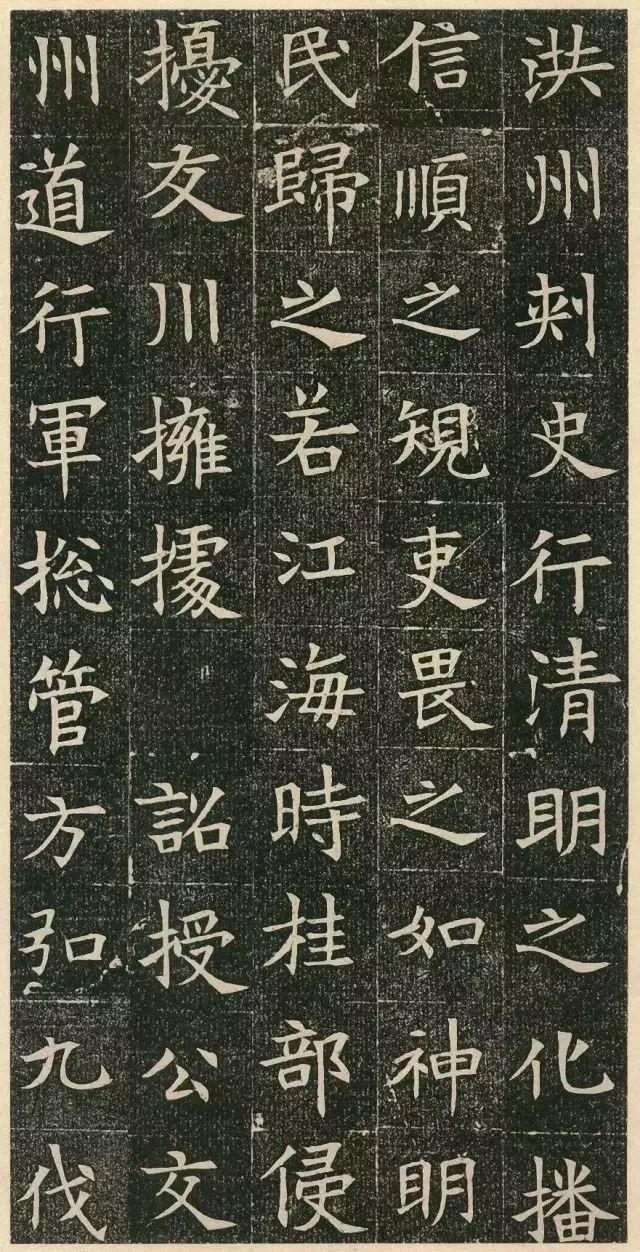 洪州刾史行清明之化播
信順之規吏畏之如神明
民歸之若江海時桂部侵
擾友川擁據 詔授公交
州道行軍捴管方弘九伐